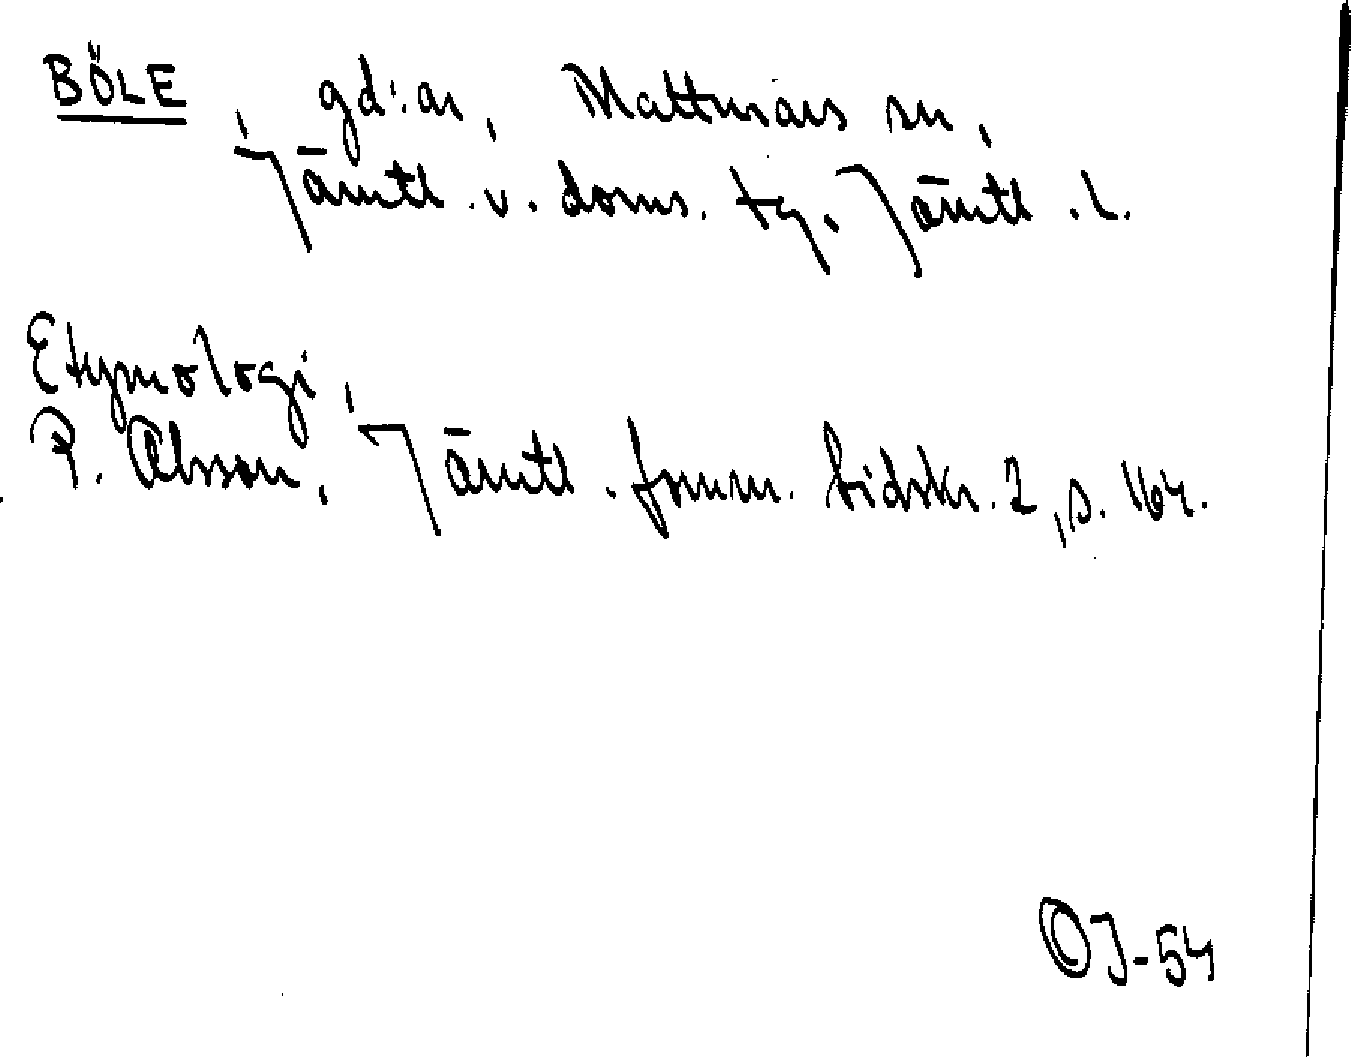 BÖLE, gd:ar, Mattmars sn,
Jämtl. v. doms. tg. Jämtl. l.
Etymologi,
P. Olsson, Jämtl. fornm. tidskr. 2, s. 164.
OJ-54